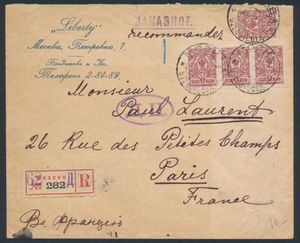 „Liberty"
Москва, Петровка, 7.
Телефонъ 2-84-89.
ЗАКАЗНОЕ.
recommandée
Monsieur
Paul Laurent
26 Rue des Petites Champs
Paris
France
Moscou
№ 282 Д R
Во Францію